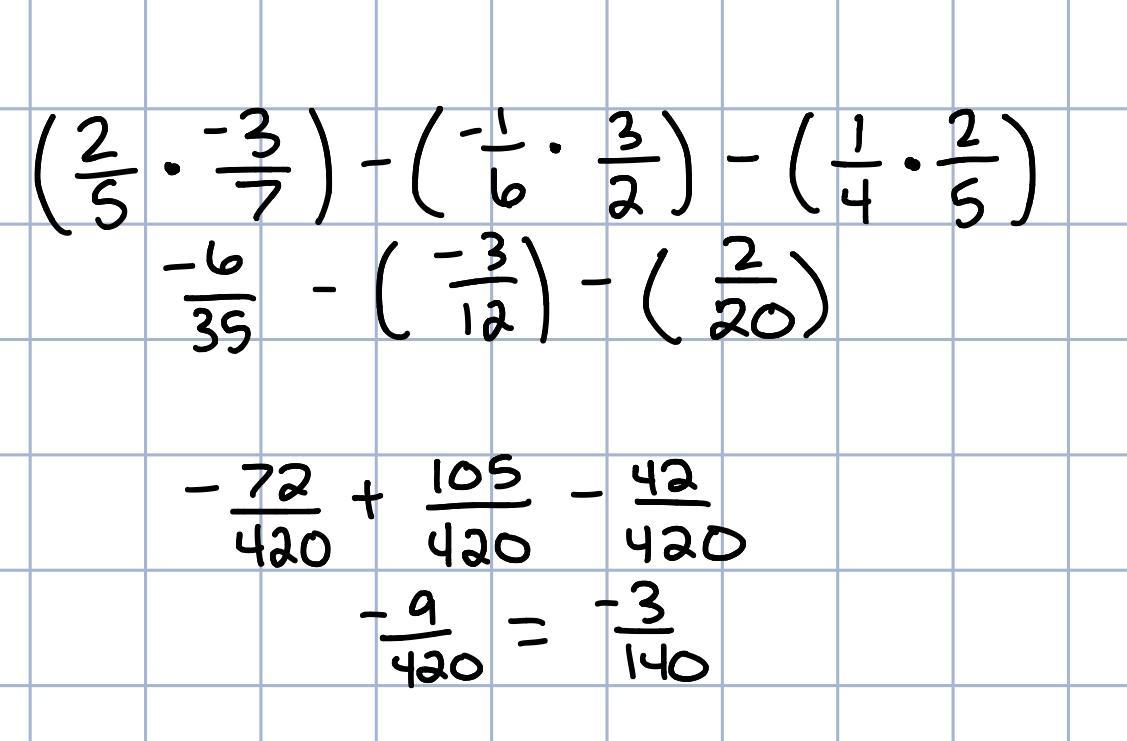 (2/5 · -3/7) - (-1/6 · 3/2) - (1/4 · 2/5)
-6/35 - (-3/12) - (2/20)
-72/420 + 105/420 - 42/420
-9/420 = -3/140